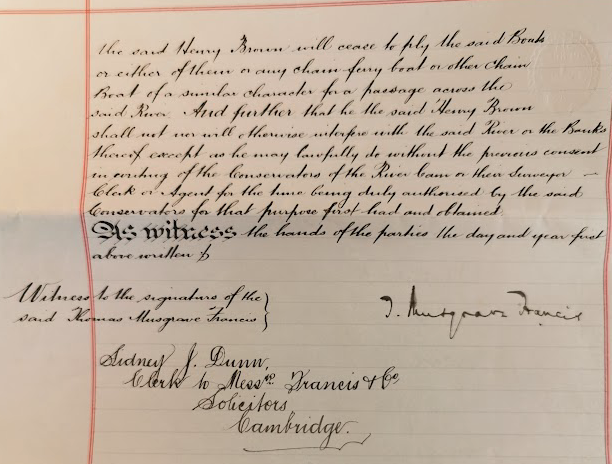 the said Henry Brown will cease to ply the said Boats
or either of them or any chain ferry boat or other Chain
Boat of a similar character for a passage across the
said River. And further that he the said Henry Brown
shall not nor will otherwise interfere with the said River or the Banks
thereof except as he may lawfully do without the previous consent
in writing of the Conservators of the River Cam or their Surveyor –
Clerk or Agent for the time being duly authorised by the said
Conservators for that purpose first had and obtained.
As witness the hands of the parties the day and year first
above written
Witness to the signature of the
said Thomas Musgrave Francis
T. Musgrave Francis
Sidney J. Dunn,
Clerk to Messrs Francis & Co,
Solicitors
Cambridge.